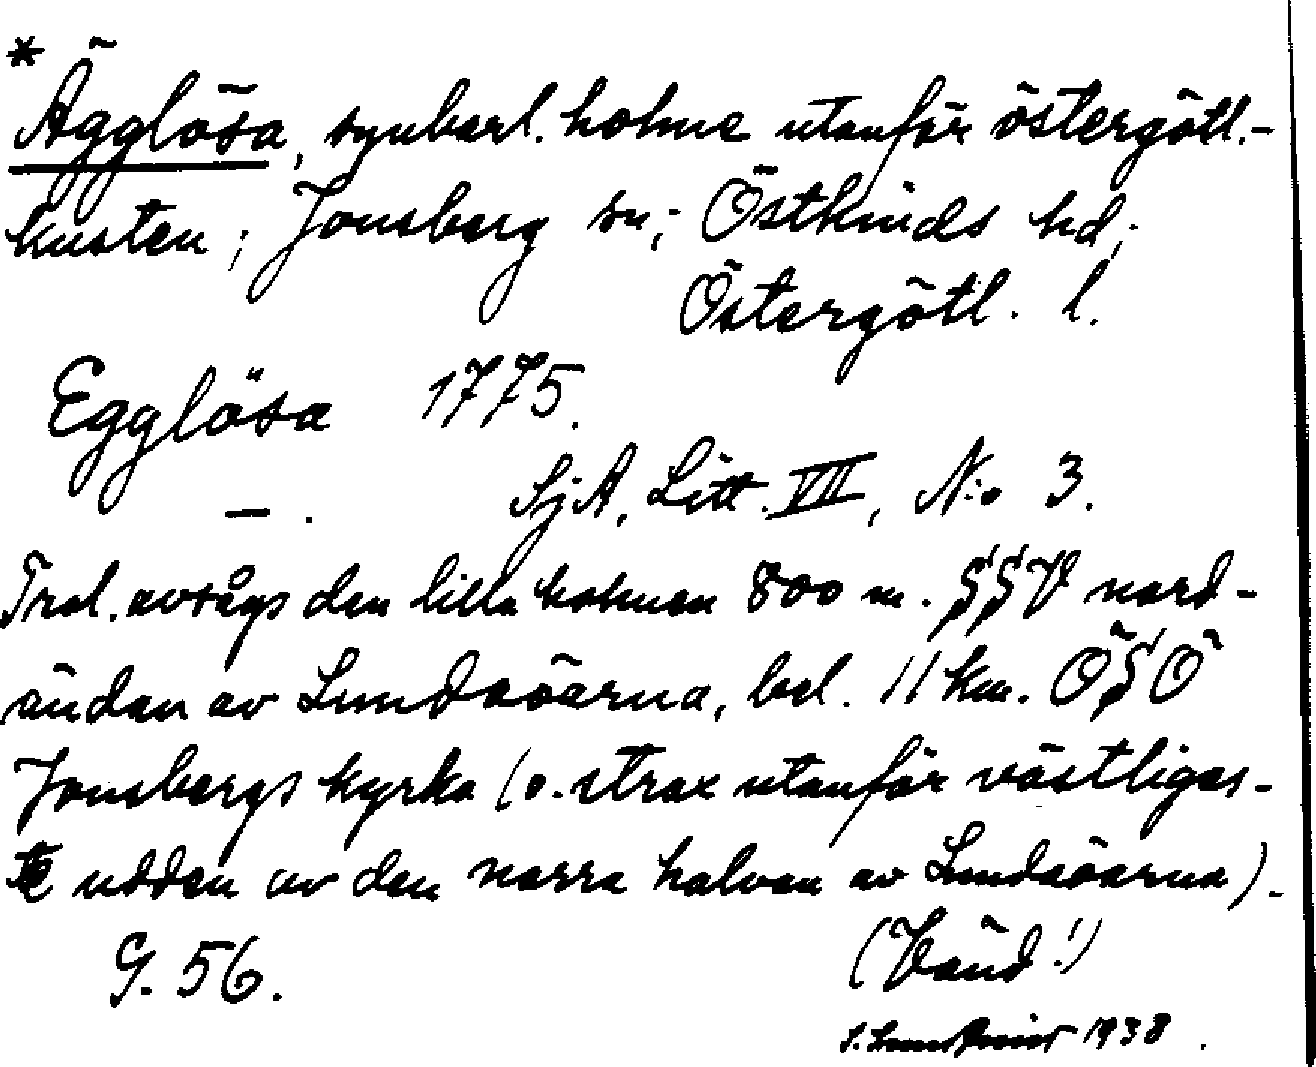 *
Ägglösa, synbarl. holme utanför östergötl.-
kusten; Jonsberg sn; Östkinds hd;
Östergötl. l.
Egglösa 1775.
— . SjA, Litt. VII, N:o 3.
Trol. avsågs den lilla holmen 800 m. SSV nord-
ändan av Lundaöarna, bel. 11 km. ÖSÖ
Jonsbergs kyrka (o. strax utanför västligas-
te udden av den norra halvan av Lundaöarna).
G. 56. (Vänd!)
1938.